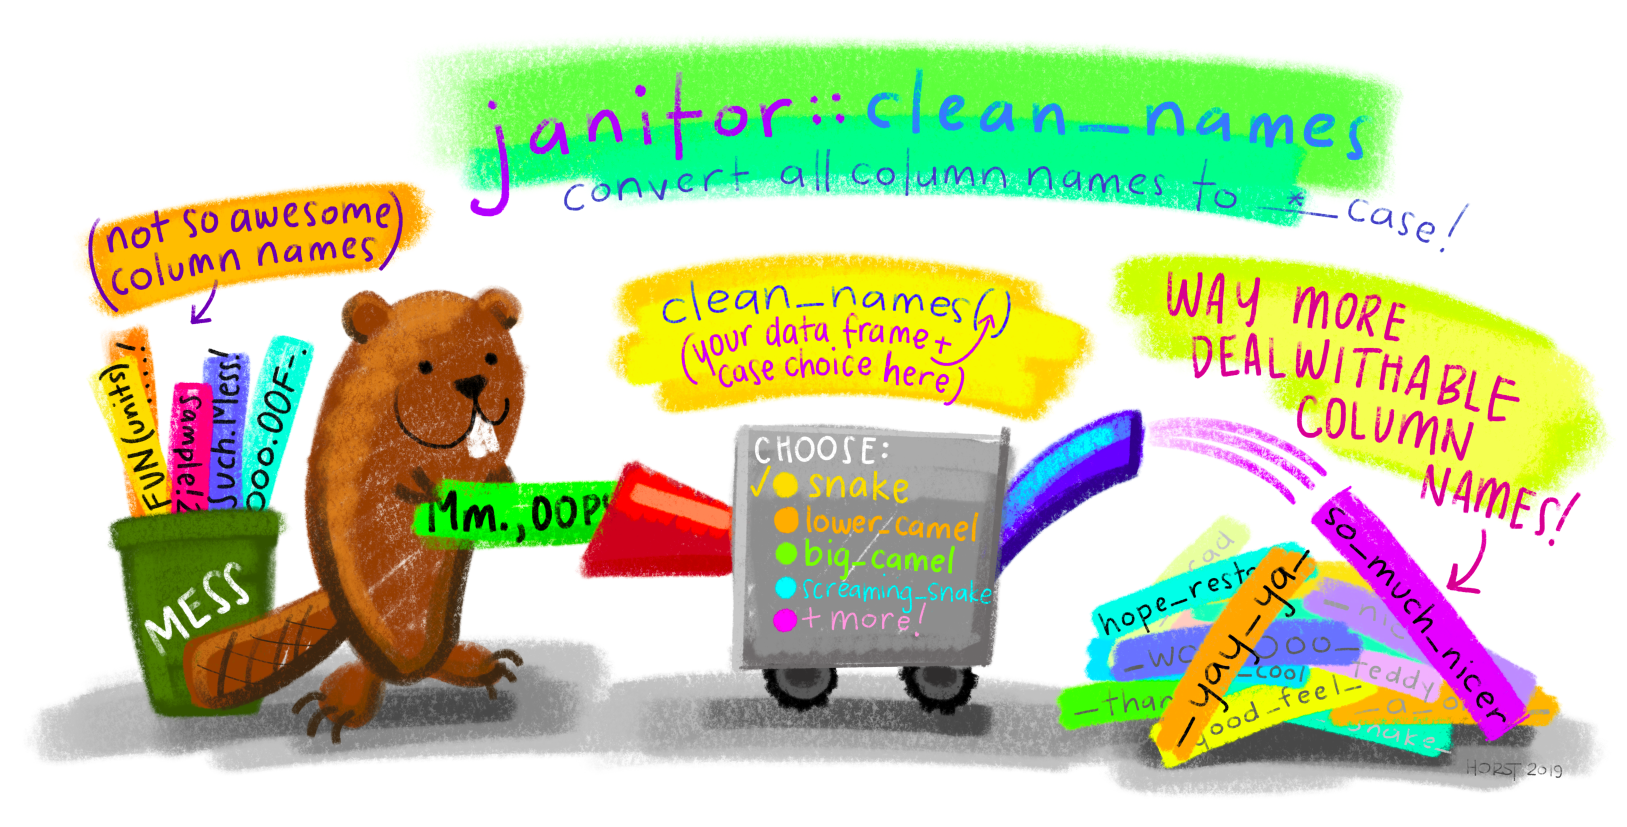 janitor::clean_names
convert all column names to _*_case!
(not so awesome
column names)
FUN (units)
sample!!2
Such.Mess!
ooo.OOF-.
MESS
Mm.,OOP
clean_names()
(your data frame +
case choice here)
CHOOSE:
✓ snake
lower_camel
big_camel
screaming_snake
+ more!
WAY MORE
DEALWITHABLE
COLUMN
NAMES!
so_much_nicer
hope_rest
_yay_ya_
_cool
teddy
good_feel_
snake_
HORST 2019